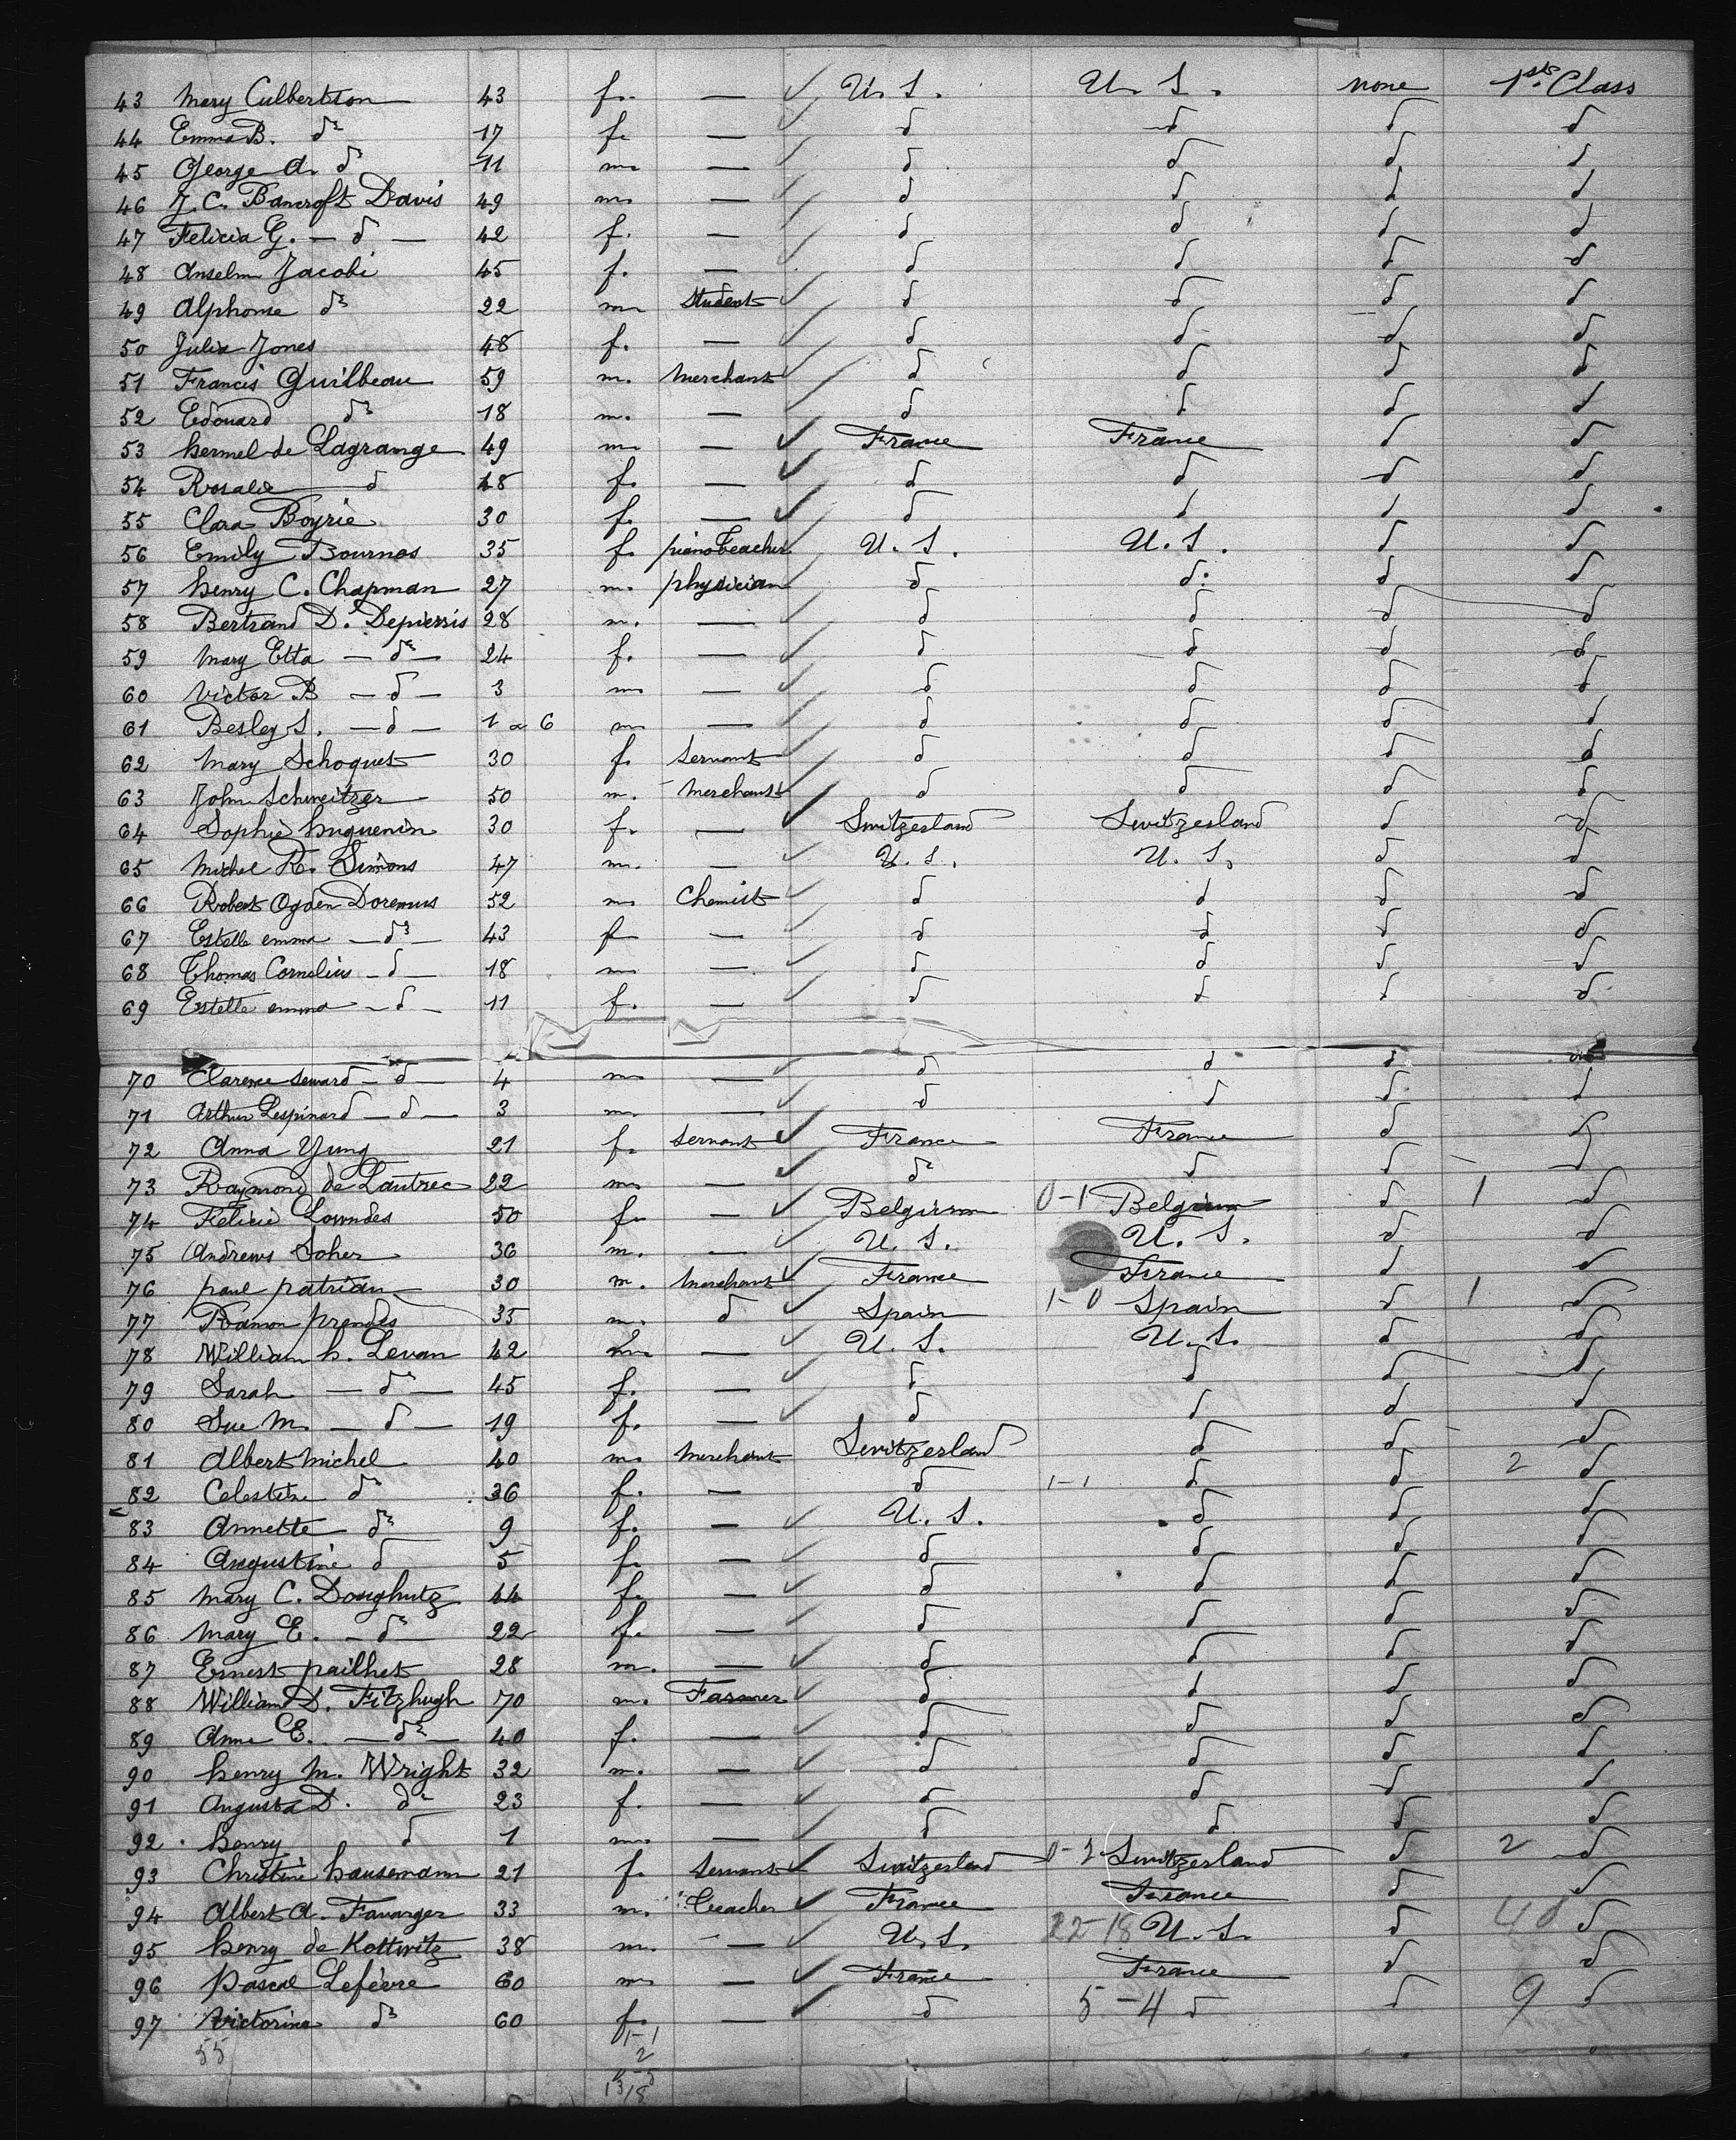 43 Mary Culbertson 43 f. — ✓ U. S. U. S. none 1st Class
44 Emma B. do 17 f. — ✓ d d d d
45 George A. do 11 m. — ✓ d d d d
46 J. C. Bancroft Davis 49 m. — ✓ d d d d
47 Felicia G. — d — 42 f. — ✓ d d d d
48 Anselm Jacobi 45 f. — ✓ d d d d
49 Alphonse do 22 m. Student ✓ d d d d
50 Julia Jones 48 f. — ✓ d d d d
51 Francis Guilbeau 59 m. Merchant ✓ d d d d
52 Edouard do 18 m. — ✓ d d d d
53 hermel de Lagrange 49 m. — ✓ France France d d
54 Rosalie d 48 f. — ✓ d d d d
55 Clara Boyrie 30 f. — ✓ d d d d
56 Emily Bournos 35 f. piano Teacher U. S. U. S. d d
57 henry C. Chapman 27 m. physician d d d d
58 Bertrand D. Depierris 28 m. — ✓ d d d d
59 Mary Etta — do — 24 f. — ✓ d d d d
60 Victor B — d — 3 m. — ✓ d d d d
61 Besley S. — d — 1 a 6 m. — ✓ d d d d
62 Mary Schoquet 30 f. Servant ✓ d d d d
63 John Schweitzer 50 m. Merchant ✓ d d d d
64 Sophie huguenin 30 f. — ✓ Switzerland Switzerland d d
65 Michel R. Simons 47 m. — ✓ U. S. U. S. d d
66 Robert Ogden Doremus 52 m. Chemist ✓ d d d d
67 Estelle emma — do — 43 f — ✓ d d d d
68 Thomas Cornelius — d — 18 m. — ✓ d d d d
69 Estelle emma — d — 11 f. — ✓ d d d d
70 Clarence Seward — d — 4 m. — ✓ d d d
71 Arthur Lespinard — d — 3 m. — ✓ d d d d
72 Anna Yung 21 f. Servant ✓ France France d d
73 Raymond de Lautrec 22 m. — ✓ do d d d
74 Felicie Lowndes 50 f. — ✓ Belgium 0-1 Belgium d 1 d
75 Andrews Soher 36 m. — ✓ U. S. U. S. d d
76 paul patrian 30 m. Merchant ✓ France France d d
77 Ramon prendes 35 m. d ✓ Spain 1-0 Spain d 1 d
78 William h. Levan 42 m. — ✓ U. S. U. S. d d
79 Sarah — do — 45 f. — ✓ d d d d
80 Sue M. — d — 19 f. — ✓ d d d d
81 Albert Michel 40 m. Merchant Switzerland d d d
82 Celestine do 36 f. — d 1-1 d d 2 d
83 Annette do 9 f. — ✓ U. S. d d d
84 Augustine d 5 f. — ✓ d d d d
85 Mary C. Doughutz 44 f. — ✓ d d d d
86 Mary E. — do — 22 f. — ✓ d d d d
87 Ernest pailhet 28 m. — ✓ d d d d
88 William D. Fitzhugh 70 m. Farmer ✓ d d d d
89 Anne E. — do — 40 f. — ✓ d d d d
90 henry M. Wright 32 m. — ✓ d d d d
91 Augusta D. do 23 f. — ✓ d d d d
92 henry d 1 m. — ✓ d d d d
93 Christine hausemann 21 f. Servant ✓ Switzerland Switzerland d 2 d
94 Albert A. Favarger 33 m. Teacher ✓ France France d d
95 henry de Kottwitz 38 m. — ✓ U. S. 22-18 U. S. d 40 d
96 Pascal Lefèvre 60 m. — ✓ France France d d
97 Victorine do 60 f. — ✓ d 5-4 d d 9 d
55 1-1
2